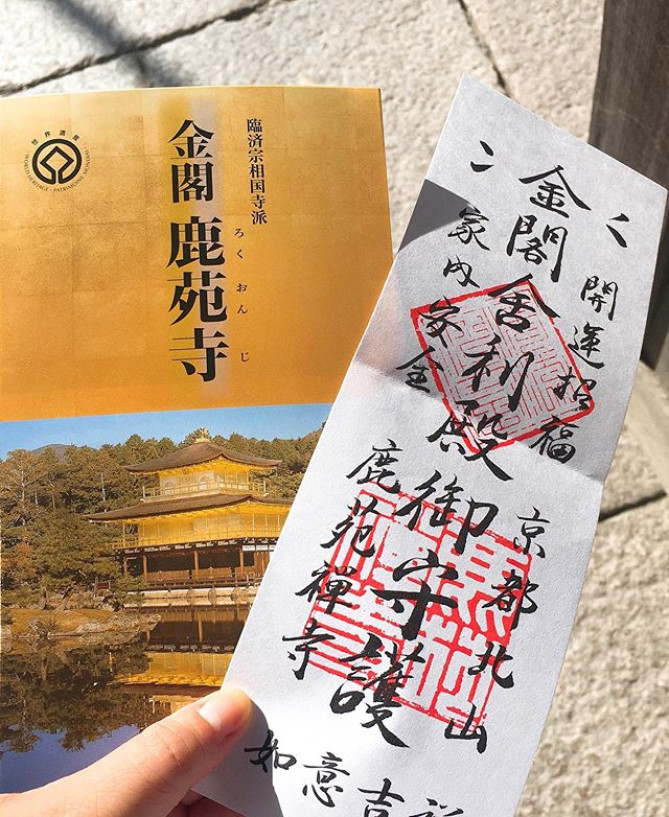 世界遺産
WORLD HERITAGE • PATRIMOINE MONDIAL
臨済宗相国寺派
金閣 鹿苑寺
ろくおんじ
開運招福
金閣舎利殿御守護
家内安全
京都北山
鹿苑禅寺
如意吉祥